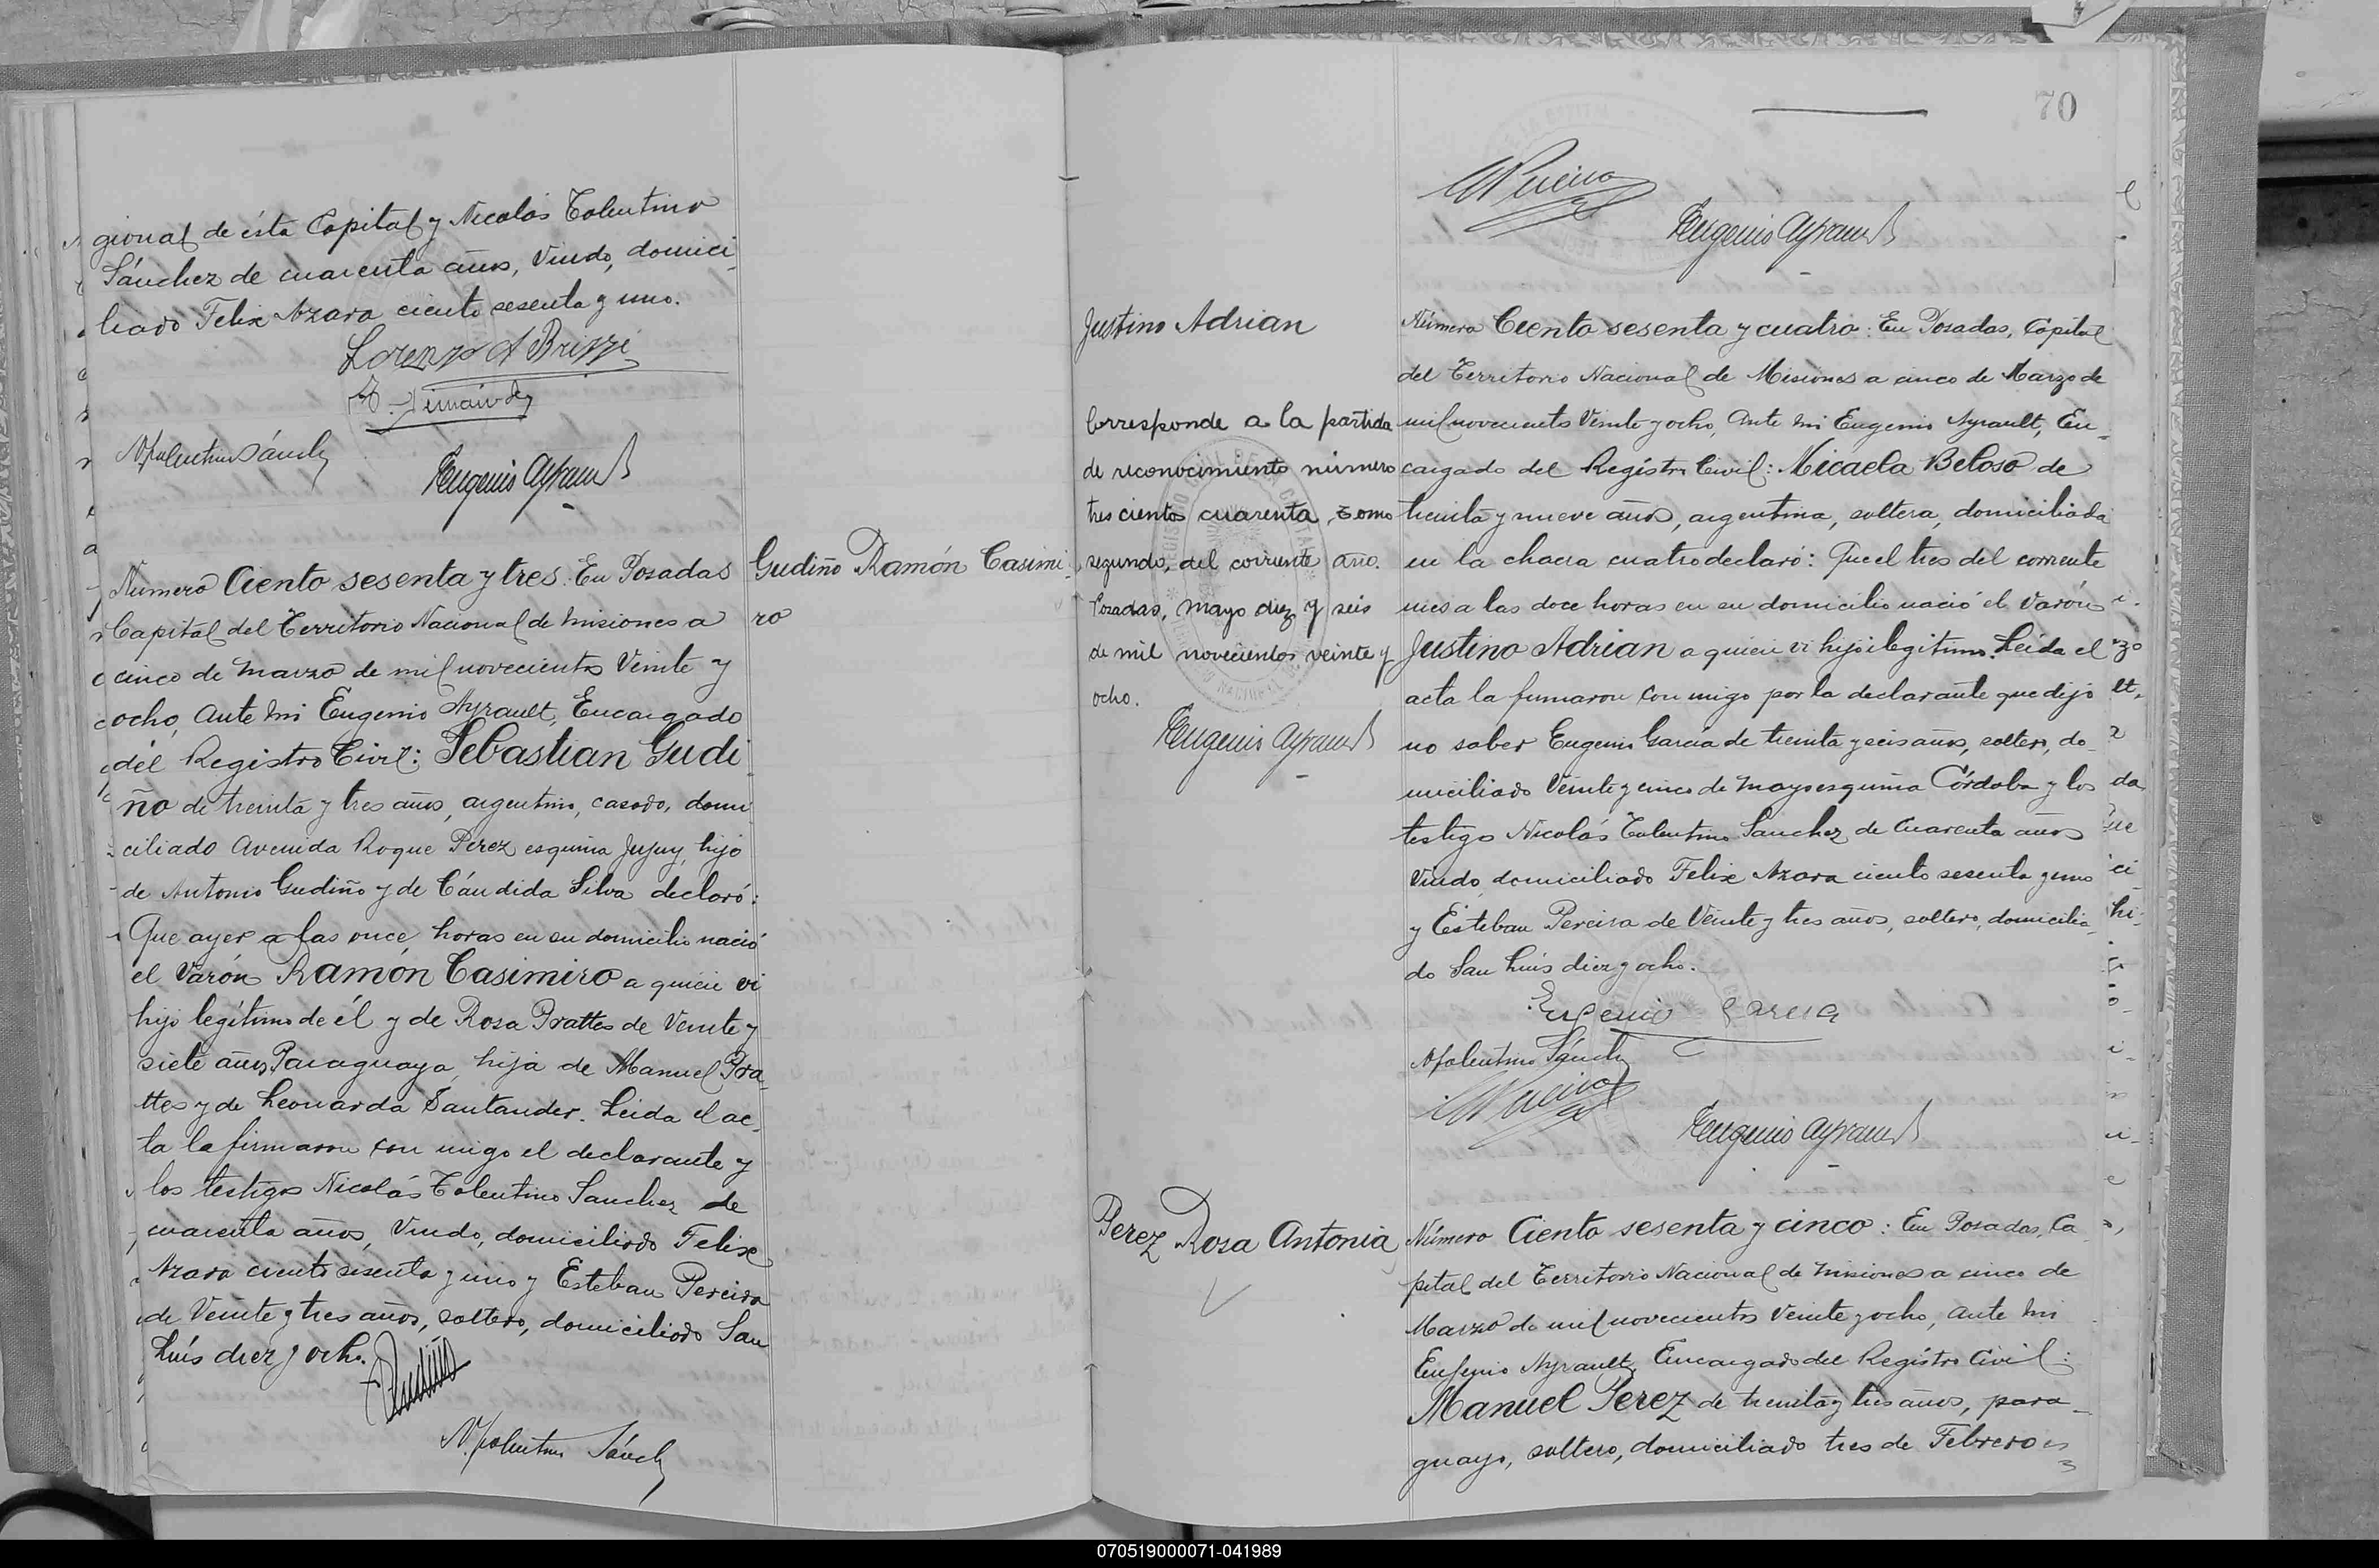 gional de ésta Capital y Nicolás Tolentino
Sánchez de cuarenta años, Viudo, domici
liado Felix Azara ciento sesenta y uno.
Lorenzo A Brizzi
N Tolentino Sánchez
Eugenio Ayrault
Gudiño Ramón Casimi
ro
Número Ciento sesenta y tres: En Posadas
Capital del Territorio Nacional de Misiones a
cinco de Marzo de mil novecientos Veinte y
ocho, Ante mi Eugenio Ayrault, Encargado
del Registro Civil: Sebastian Gudi
ño de treinta y tres años, argentino, casado, domi
ciliado Avenida Roque Perez esquina Jujuy, hijo
de Antonio Gudiño y de Cándida Silva declaró:
Que ayer a las once horas en su domicilio nació
el Varón Ramón Casimiro a quien vi
hijo legítimo de él y de Rosa Prattes de Veinte y
siete años, Paraguaya, hija de Manuel Pra
ttes y de Leonarda Santander. Leida el ac
ta la firmaron con migo el declarante y
los testigos Nicolás Tolentino Sanchez de
cuarenta años, Viudo, domiciliado Felix
Azara ciento sesenta y uno y Esteban Pereira
de Veinte y tres años, soltero, domiciliado San
Luís diez y ocho.
N. Tolentino Sánchez
70
Eugenio Ayrault
Justino Adrian
Corresponde a la partida
de reconocimiento número
tres cientos cuarenta, tomo
segundo, del corriente año.
Posadas, mayo diez y seis
de mil novecientos veinte y
ocho.
Eugenio Ayrault
Número Ciento sesenta y cuatro: En Posadas, Capital
del Territorio Nacional de Misiones a cinco de Marzo de
mil novecientos Veinte y ocho, Ante mi Eugenio Ayrault, En-
cargado del Registro Civil: Micaela Beloso de
treinta y nueve años, argentina, soltera, domiciliada
en la chacra cuatro declaró: Que el tres del corriente
mes a las doce horas en su domicilio nació el Varón
Justino Adrian a quien vi hijo ilegitimo. Leida el
acta la firmaron con migo por la declarante que dijo
no saber Eugenio García de treinta y seis años, soltero, do-
miciliado Veinte y cinco de Mayo esquina Córdoba y los
testigos Nicolás Tolentino Sanchez de Cuarenta años
Viudo, domiciliado Felix Azara ciento sesenta y uno
y Esteban Pereira de Veinte y tres años, soltero, domicilia
do San Luis diez y ocho.
Eugenio Garcia
N Tolentino Sánchez
Eugenio Ayrault
Perez Rosa Antonia
Número Ciento sesenta y cinco: En Posadas, Ca
pital del Territorio Nacional de Misiones a cinco de
Marzo de mil novecientos Veinte y ocho, Ante mi
Eugenio Ayrault, Encargado del Registro Civil:
Manuel Perez de treinta y tres años, para-
guayo, soltero, domiciliado tres de Febrero
070519000071-041989